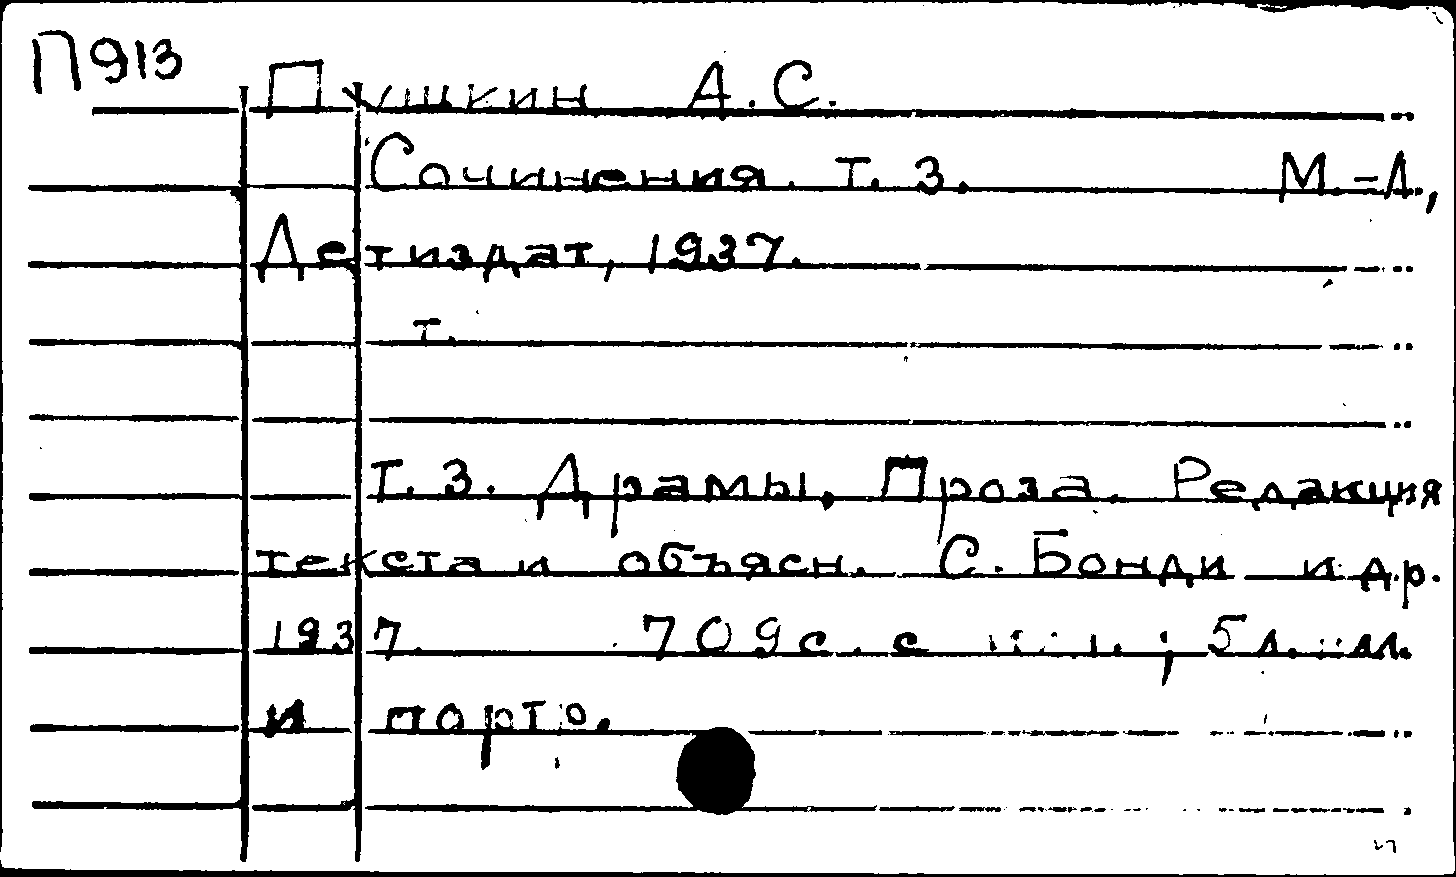 П913
Пушкин А.С.
Сочинения. Т. 3. М.=Л.,
Детиздат, 1937.
Т.
Т. 3. Драмы, Проза. Редакция
текста и объясн. С. Бонди и др.
1937. 709с. с илл.; 5л. илл.
и портр.